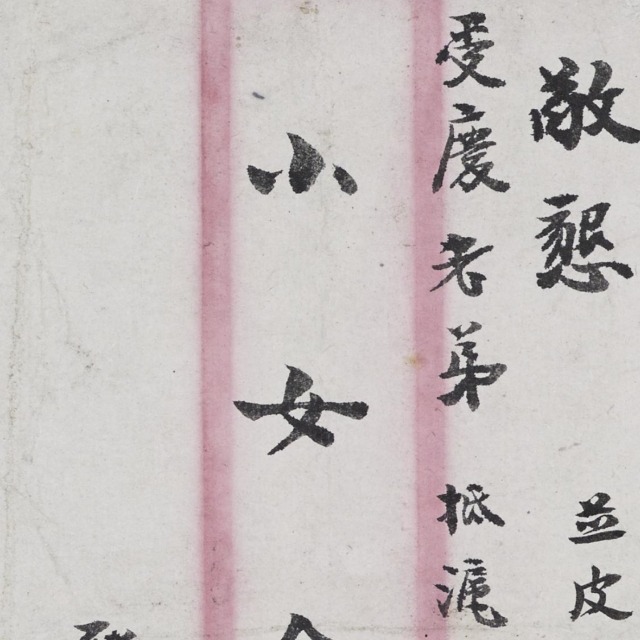 敬懇 並皮
受慶老弟 抵滬
小女